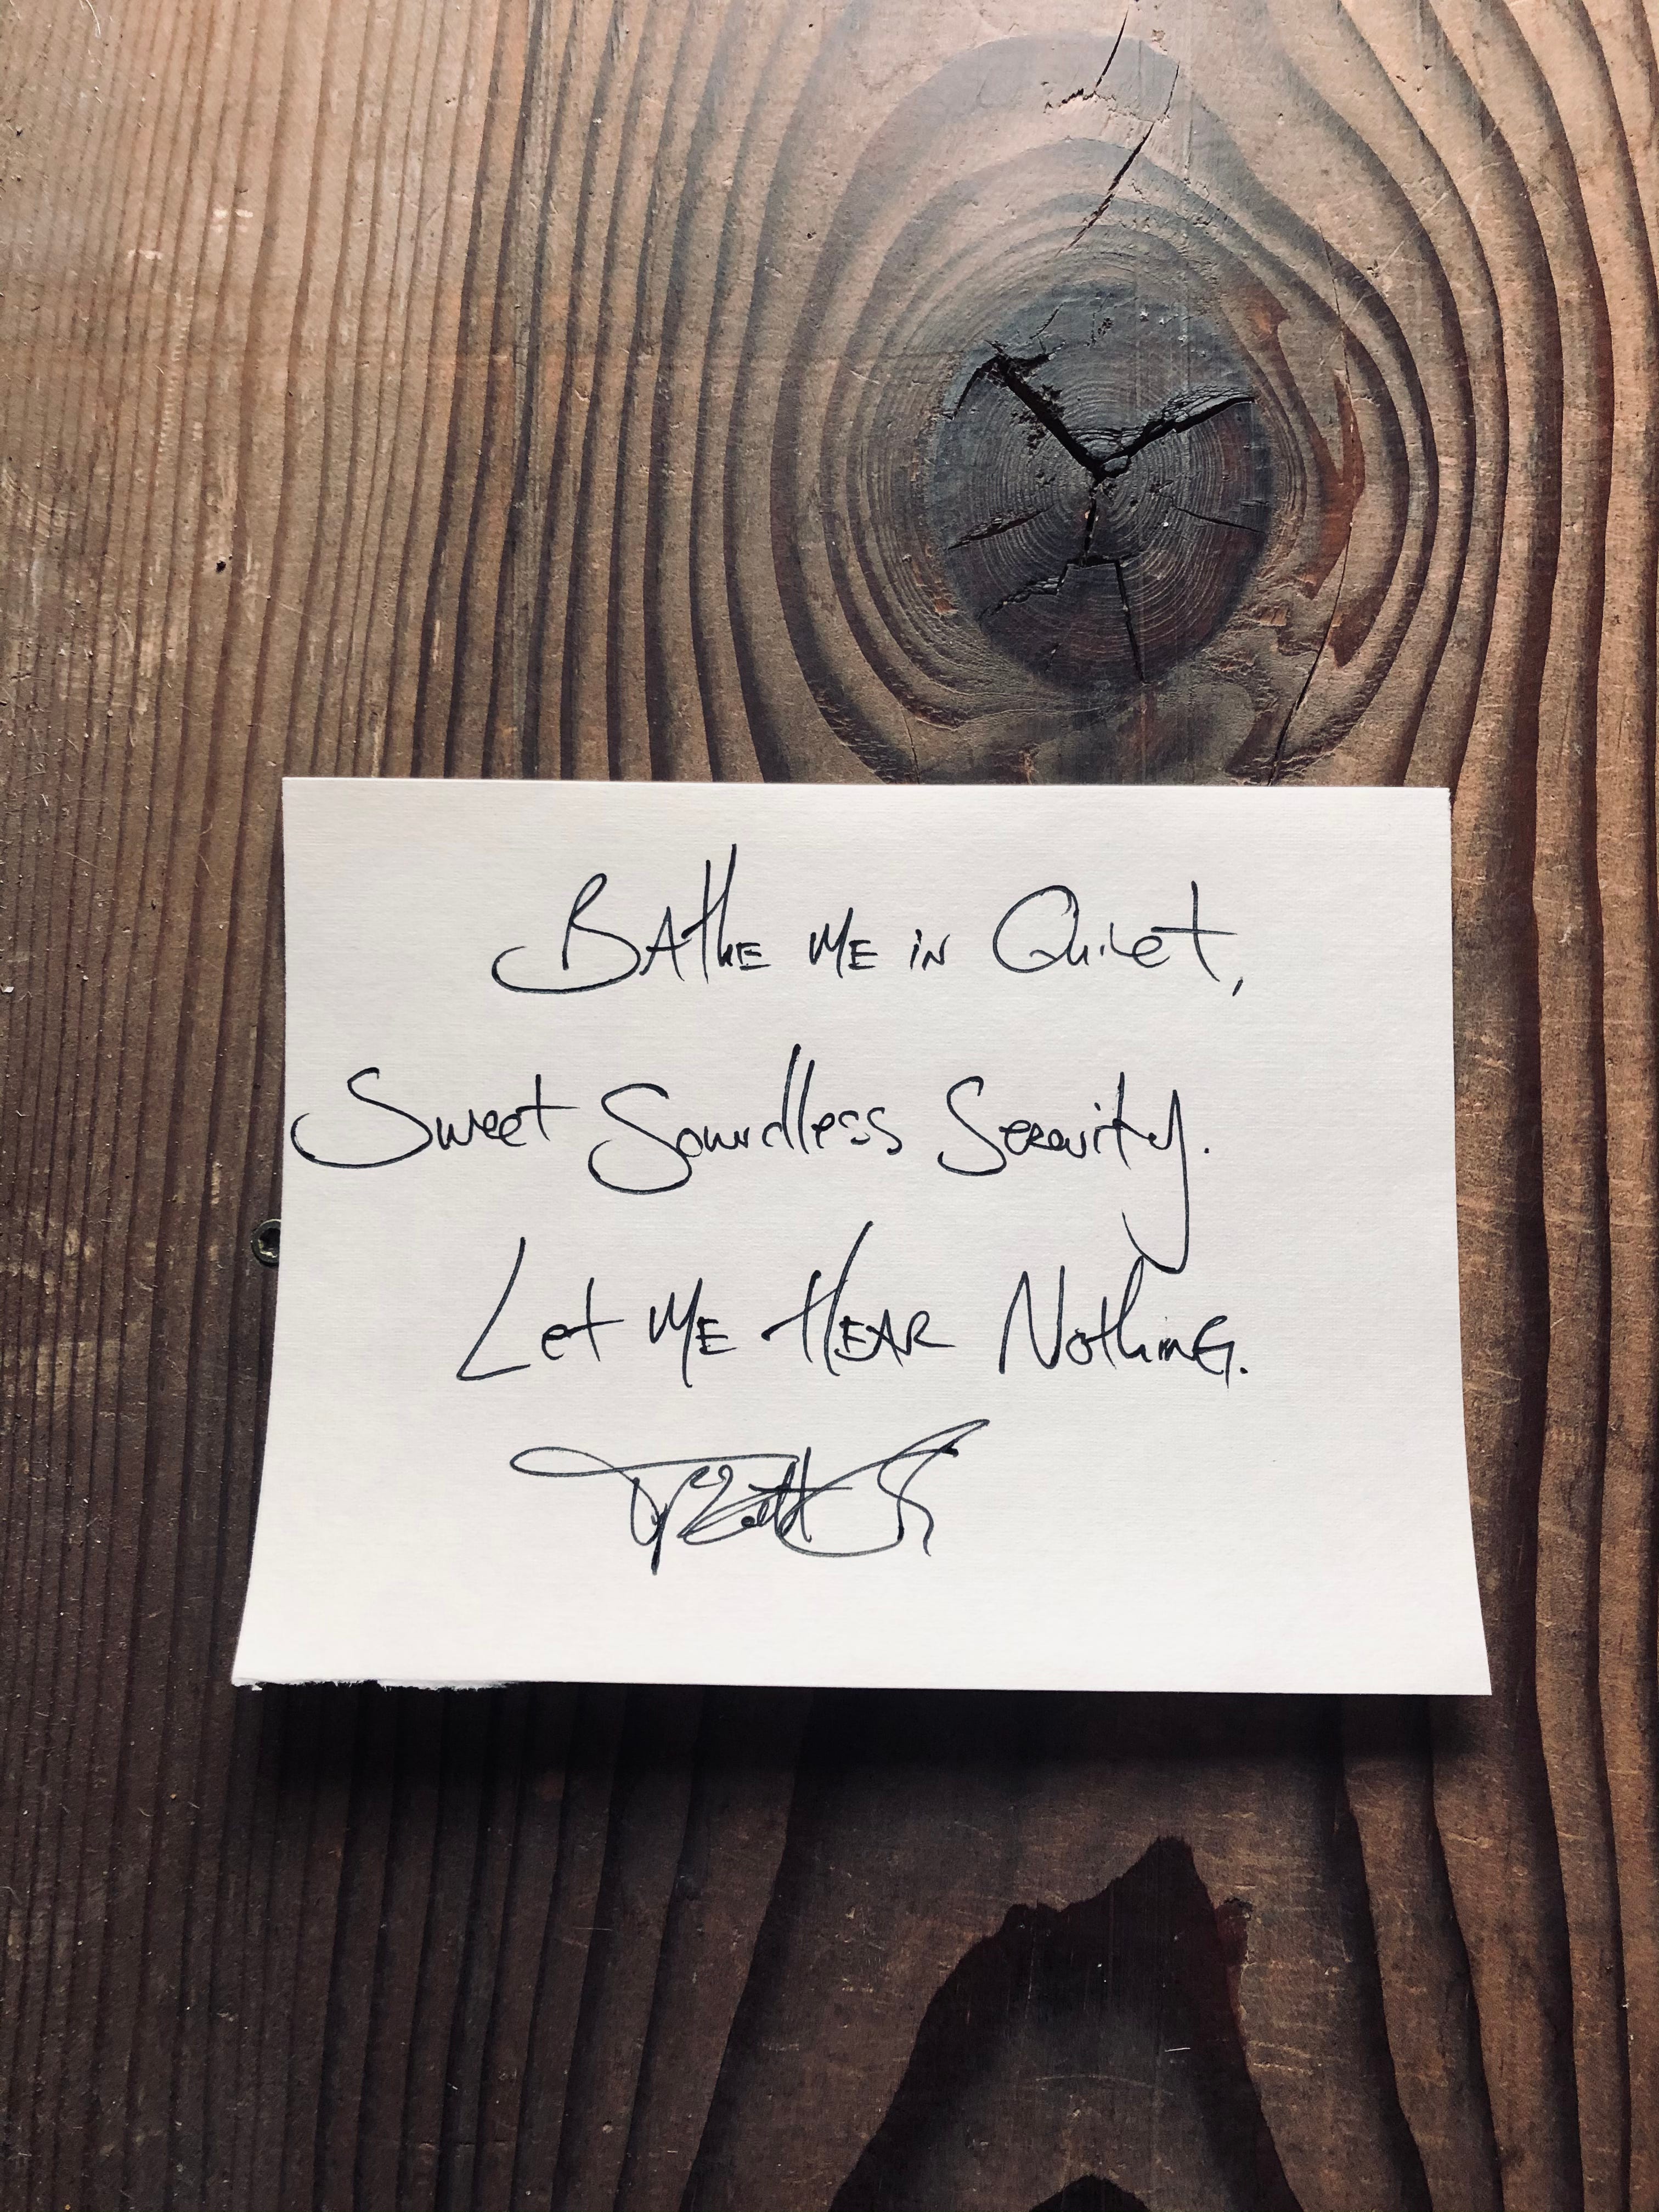 Bathe me in Quiet,
Sweet Soundless Serenity.
Let me Hear Nothing.